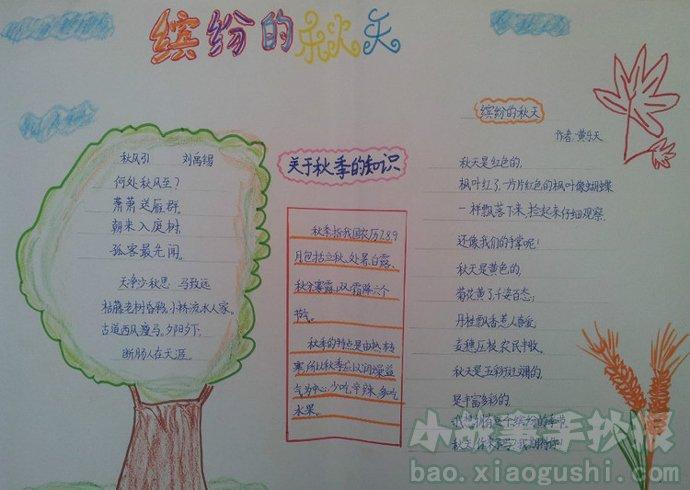 缤纷的秋天
秋风引 刘禹锡
何处秋风至?
萧萧送雁群。
朝来入庭树,
孤客最先闻。
天净沙秋思 马致远
枯藤老树昏鸦,小桥流水人家。
古道西风瘦马,夕阳西下,
断肠人在天涯。
关于秋季的知识
秋季指我国农历7.8.9
月包括立秋、处暑、白露、
秋分寒露、霜降六个
节气。
秋季的特点是由热转
寒,所以秋季应以润燥益
气为中心,少吃辛辣,多吃
水果。
缤纷的秋天
作者:黄乐天
秋天是红色的,
枫叶红了,一片片红色的枫叶像蝴蝶
一样飘落下来,捡起来仔细观察,
还像我们的手掌呢!
秋天是黄色的,
菊花黄了千姿百态;
丹桂飘香惹人喜爱,
麦穗压枝农民丰收。
秋天是五彩斑斓的,
是丰富多彩的,
小故事手抄报
bao.xiaogushi.com